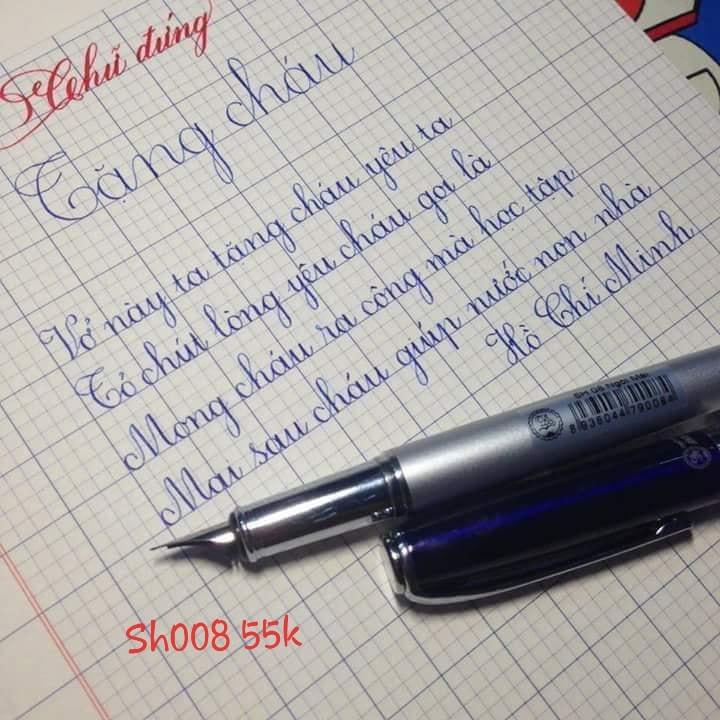 Chữ đứng
Tặng cháu
Vở này ta tặng cháu yêu ta
Tỏ chút lòng yêu cháu gọi là
Mong cháu ra công mà học tập
Mai sau cháu giúp nước non nhà
Hồ Chí Minh
SH 08 Ngòi Mài
8 936044 790084
Sh008 55k